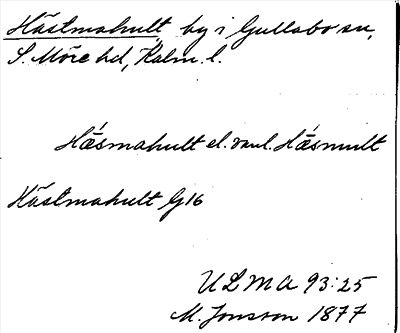 Hästmahult, by i Gullabo sn,
S. Möre hd, Kalm. l.
Hǽsmahult el. vanl. Hǽsmult
Hästmahult G16
ULMA 93:25
M. Jonsson 1877